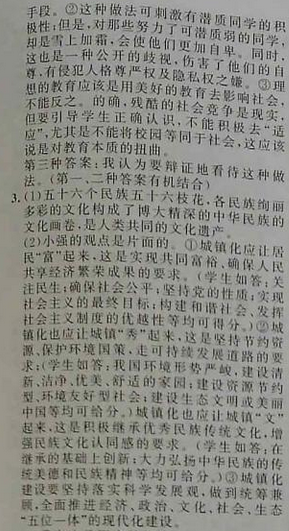 手段。②这种做法可刺激有潜质同学的积
极性;但是,对那些努力了可潜质弱的同学,
却是雪上加霜,会使他们更加自卑。同时,
这也是一种公开的歧视,伤害了他们的自
尊,有侵犯人格尊严权及隐私权之嫌。③理
想的教育应该是用美好的教育去影响社会,
不能反之。的确,残酷的社会竞争是现实,
但要引导学生正确认识,不能积极去“适
应”,尤其是不能将校园等同于社会,这应该
说是对教育本质的扭曲。
第三种答案:我认为要辩证地看待这种做
法。(第一、二种答案有机结合)
3.(1)五十六个民族五十六枝花,各民族绚丽
多彩的文化构成了博大精深的中华民族的
文化画卷,是人类共同的文化遗产。
(2)小强的观点是片面的。①城镇化应让居
民“富”起来,这是实现共同富裕,确保人民
共享经济繁荣成果的要求。(学生如答:关
注民生;确保社会公平;坚持党的性质;实现
社会主义的最终目标;构建和谐社会、发挥
社会主义制度的优越性等均可得分。)②城
镇化也应让城镇“秀”起来,这是坚持节约资
源、保护环境国策,走可持续发展道路的要
求;(学生如答:我国环境形势严峻,建设清
新、洁净、优美、舒适的家园;建设资源节约
型、环境友好型社会;建设生态文明或美丽
中国等均可给分。)城镇化也应让城镇“文”
起来,这是积极继承优秀民族传统文化,增
强民族文化认同感的要求。(学生如答:在
继承的基础上创新;大力弘扬中华民族的传
统美德和民族精神等均可给分。)③城镇化
建设要坚持落实科学发展观,做到统筹兼
顾,全面推进经济、政治、文化、社会、生态
“五位一体”的现代化建设。